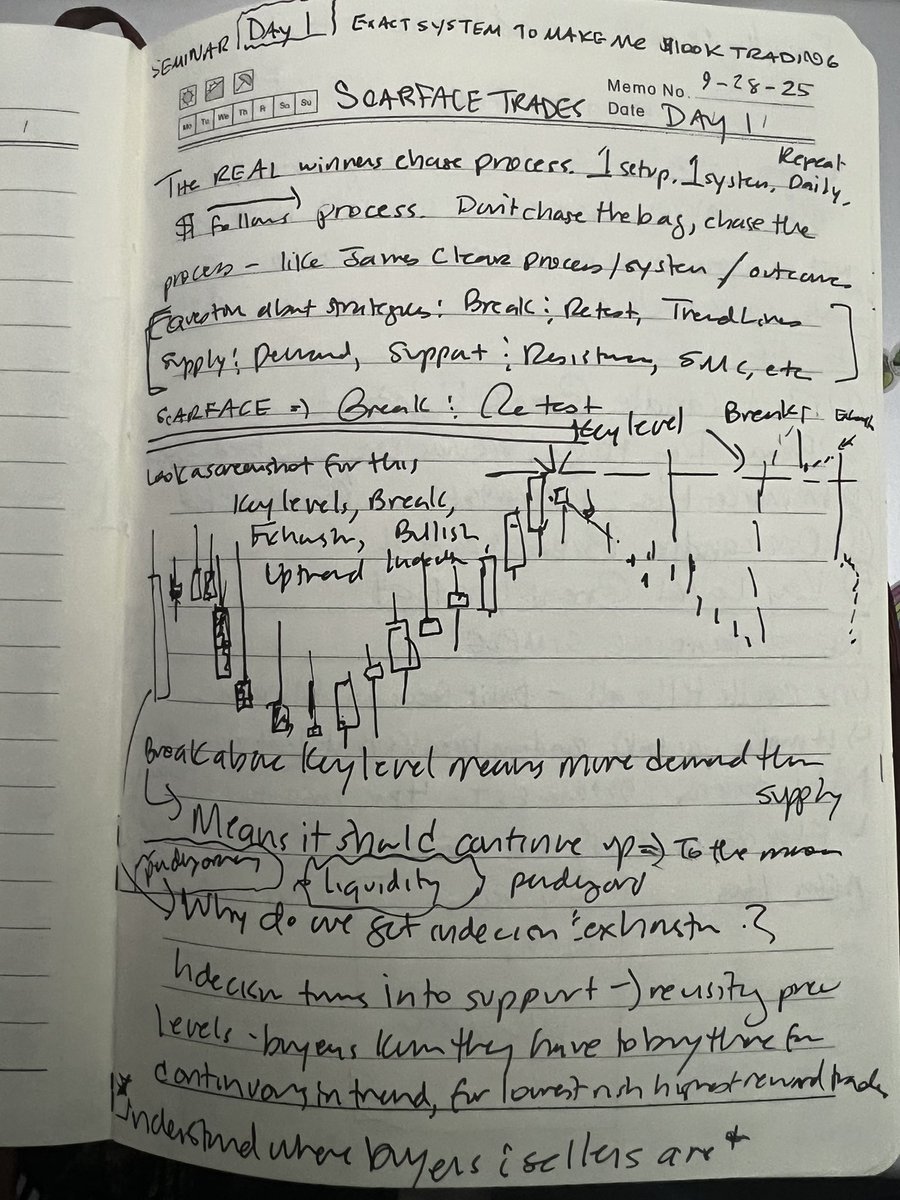 SEMINAR DAY 1 EXACT SYSTEM TO MAKE ME $100K TRADING
Memo No. 9-28-25
Mo Tu We Th Fr Sa Su
SCARFACE TRADES
Date DAY 1
THE REAL winners chase process. 1 setup. 1 system. Repeat Daily.
$ follows process. Don't chase the bag, chase the
process - like James Clear process/system/outcome
about strategies: Break & Retest, TrendLines
Supply & Demand, Support & Resistance, SMC, etc
SCARFACE => Break & Retest
Key level
Break
Exhaust
Look a screenshot for this
Key levels, Break,
Exhaust, Bullish
Uptrend
Break above key level means more demand than
supply
Means it should continue up => To the
liquidity
Why do we get indecision & exhaustn ?
Indecision turns into support -> prev
levels - buyers know they have to buy there for
in trend, for lowest risk highest reward trade
*Understand where buyers & sellers are*